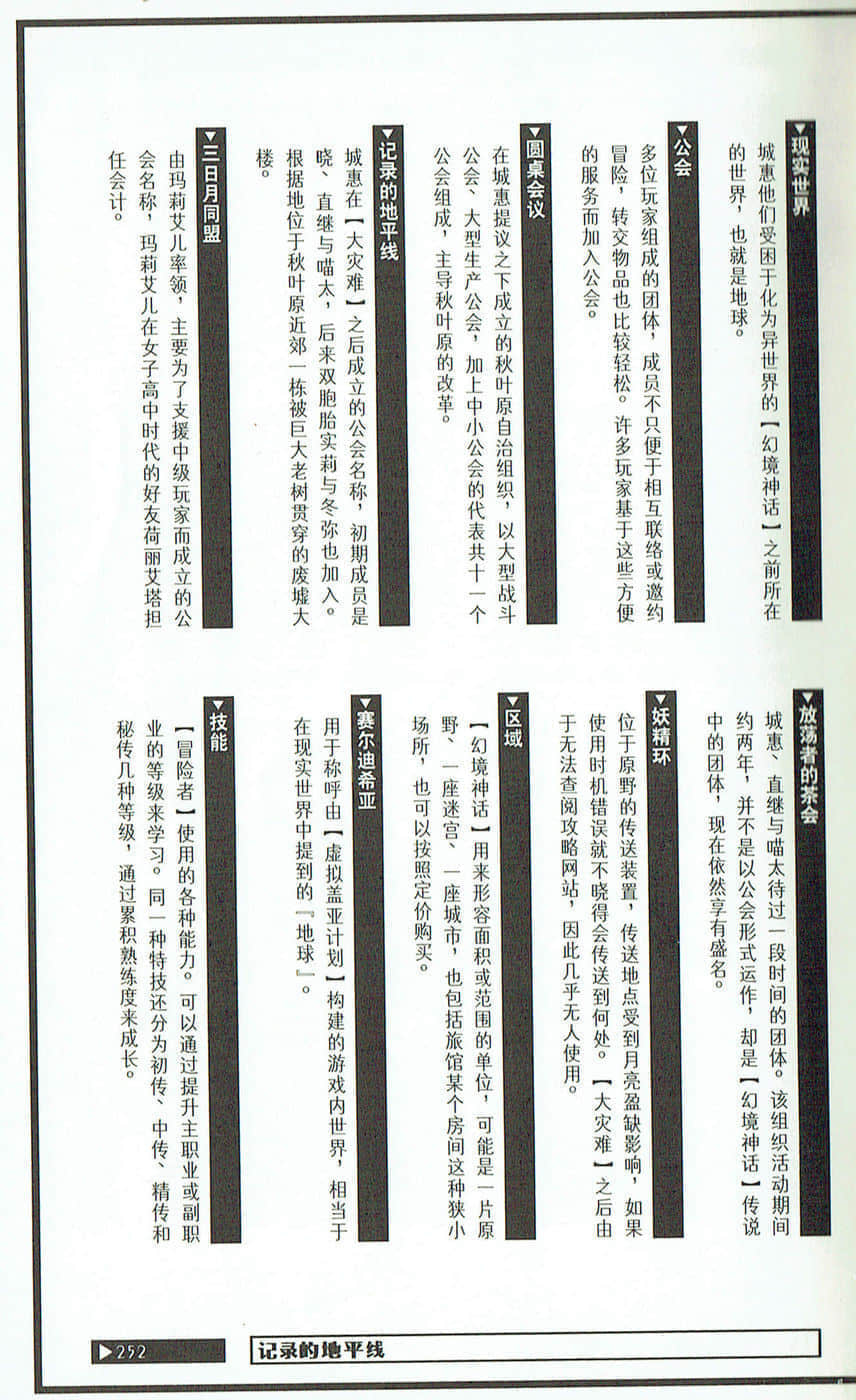 ▼现实世界
城惠他们受困于化为异世界的【幻境神话】之前所在
的世界，也就是地球。
▼公会
多位玩家组成的团体，成员不只便于相互联络或邀约
冒险，转交物品也比较轻松。许多玩家基于这些方便
的服务而加入公会。
▼圆桌会议
在城惠提议之下成立的秋叶原自治组织，以大型战斗
公会、大型生产公会，加上中小公会的代表共十一个
公会组成，主导秋叶原的改革。
▼记录的地平线
城惠在【大灾难】之后成立的公会名称，初期成员是
晓、直继与喵太，后来双胞胎实莉与冬弥也加入。
根据地位于秋叶原近郊一栋被巨大老树贯穿的废墟大
楼。
▼三日月同盟
由玛莉艾儿率领，主要为了支援中级玩家而成立的公
会名称，玛莉艾儿在女子高中时代的好友荷丽艾塔担
任会计。
▼放荡者的茶会
城惠、直继与喵太待过一段时间的团体。该组织活动期间
约两年，并不是以公会形式运作，却是【幻境神话】传说
中的团体，现在依然享有盛名。
▼妖精环
位于原野的传送装置，传送地点受到月亮盈缺影响，如果
使用时机错误就不晓得会传送到何处。【大灾难】之后由
于无法查阅攻略网站，因此几乎无人使用。
▼区域
【幻境神话】用来形容面积或范围的单位，可能是一片原
野、一座迷宫、一座城市，也包括旅馆某个房间这种狭小
场所，也可以按照定价购买。
▼赛尔迪希亚
用于称呼由【虚拟盖亚计划】构建的游戏内世界，相当于
在现实世界中提到的『地球』。
▼技能
【冒险者】使用的各种能力。可以通过提升主职业或副职
业的等级来学习。同一种特技还分为初传、中传、精传和
秘传几种等级，通过累积熟练度来成长。
▶252
记录的地平线